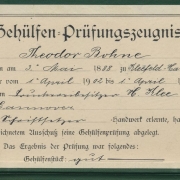 Gehülfen-Prüfungszeugnis
Theodor Bohne
n am 3. Mai 1888 zu
vom 1. April 1902 bis 1. April
Buchdruckereibesitzer H. Klee
Hannover
Schriftsetzer -Handwerk erlernt, ha
ichnetem Ausschuß seine Gehülfenprüfung abgelegt.
Das Ergebnis der Prüfung war folgendes:
Gehülfenstück: gut